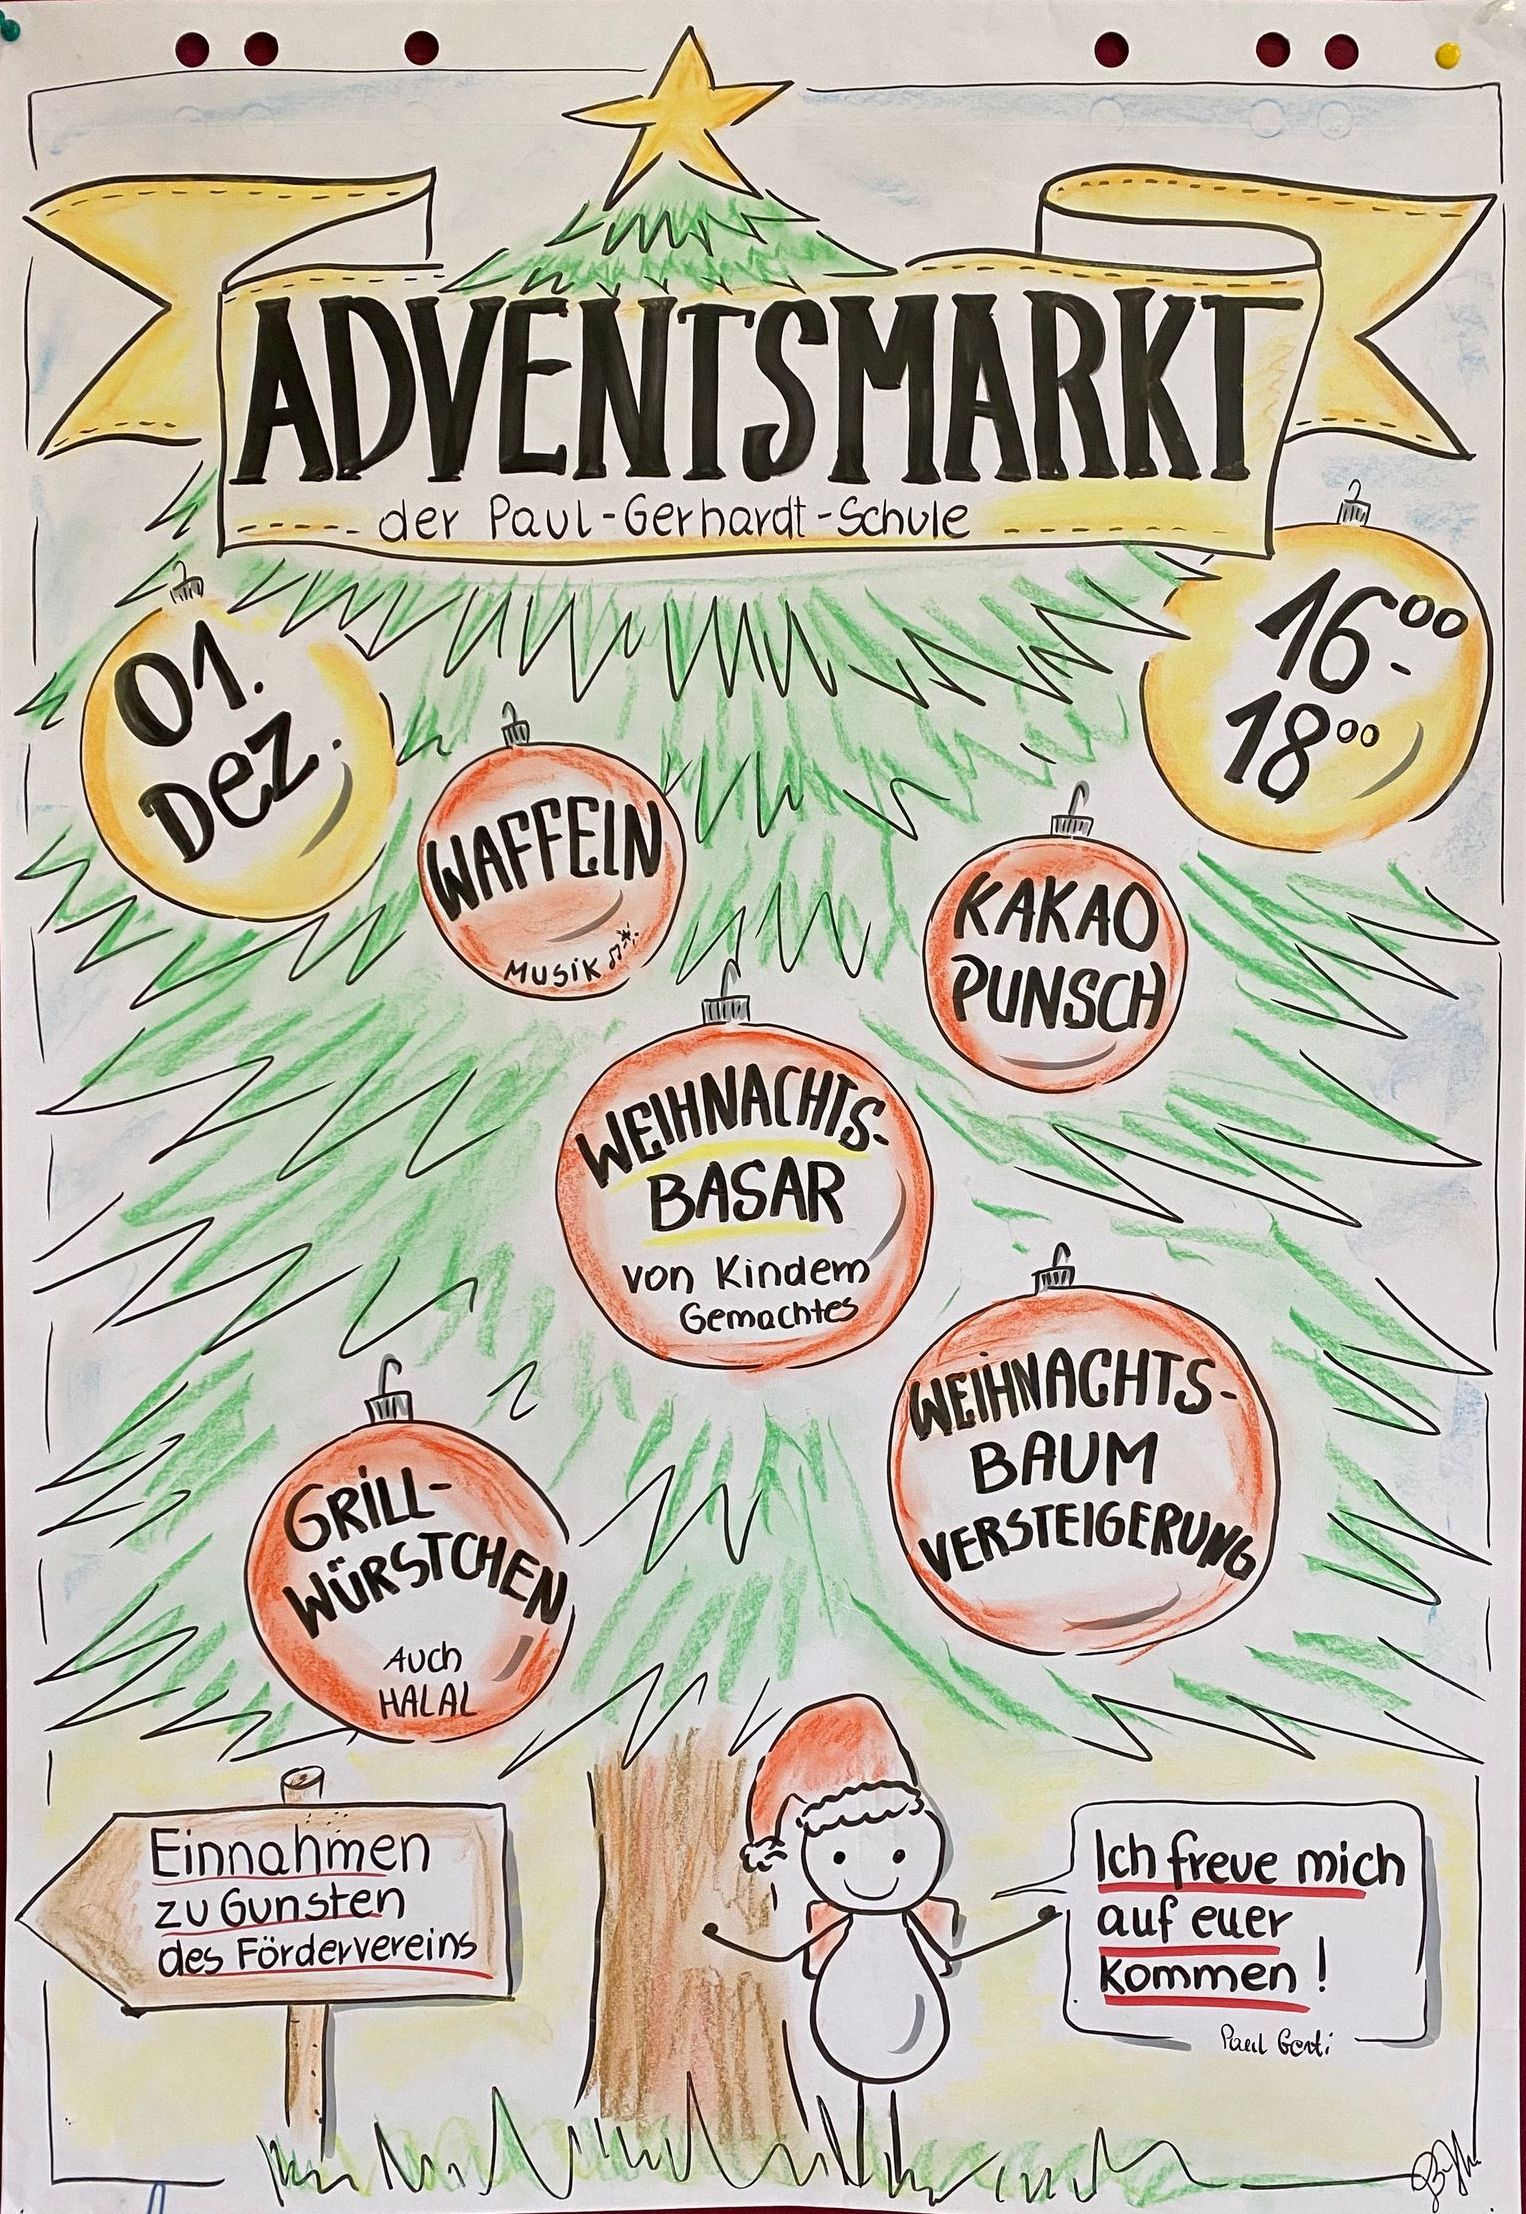 ADVENTSMARKT
der Paul-Gerhardt-Schule
01.
Dez.
16⁰⁰-
18⁰⁰
WAFFELN
MUSIK
KAKAO
PUNSCH
WEIHNACHTS-
BASAR
von Kindern
Gemachtes
WEIHNACHTS-
BAUM
VERSTEIGERUNG
GRILL-
WÜRSTCHEN
AUCH
HALAL
Einnahmen
zu Gunsten
des Fördervereins
Ich freue mich
auf euer
kommen!
Paul Gerdi